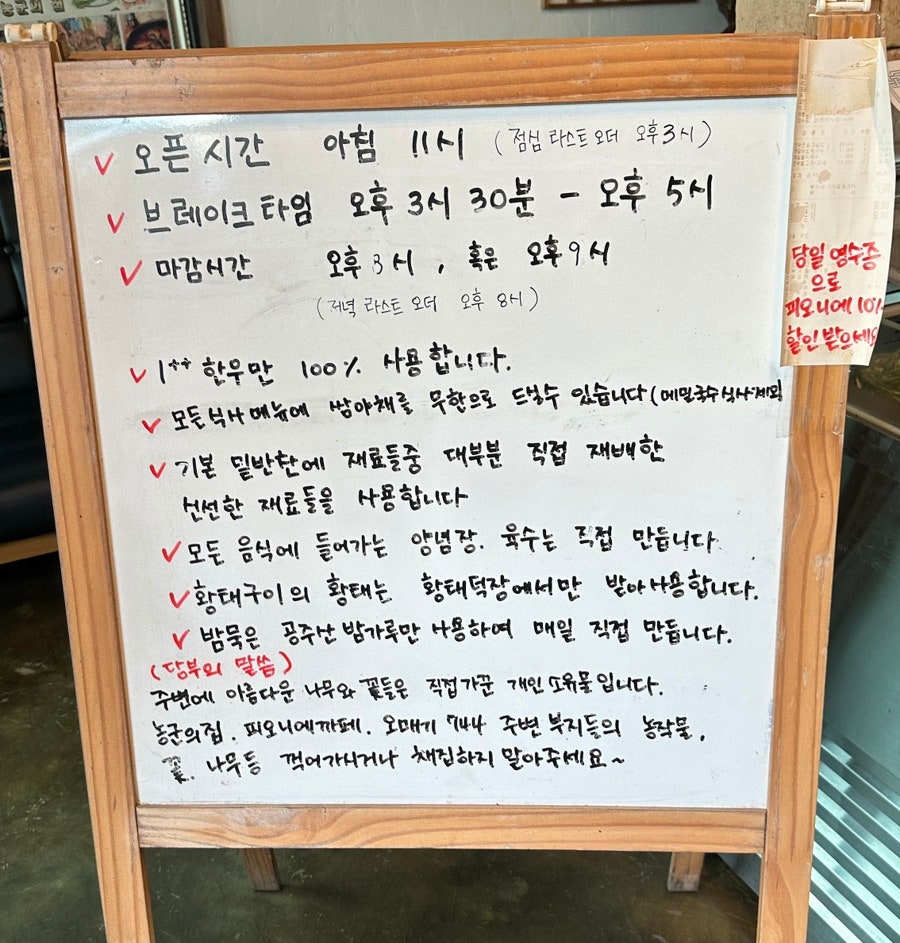 ✓ 오픈 시간 아침 11시 (점심 라스트 오더 오후 3시)
✓ 브레이크 타임 오후 3시 30분 - 오후 5시
✓ 마감시간 오후 8시, 혹은 오후 9시
(저녁 라스트 오더 오후 8시)
✓ 1++ 한우만 100% 사용합니다.
✓ 모든식사 메뉴에 쌈야채를 무한으로 드실수 있습니다 (메밀국수식사제외
✓ 기본 밑반찬에 재료들중 대부분 직접 재배한
신선한 재료들을 사용합니다
✓ 모든 음식에 들어가는 양념장. 육수는 직접 만듭니다.
✓ 황태구이의 황태는 황태덕장에서만 받아사용합니다.
✓ 밤묵은 공주산 밤가루만 사용하여 매일 직접 만듭니다.
(당부의 말씀)
주변에 아름다운 나무와 꽃들은 직접가꾼 개인소유물입니다.
농군의집. 피오니에카페. 오매기 744 주변 부지들의 농작물,
꽃. 나무등 꺾어가시거나 채집하지 말아주세요~
당일 영수증
으로
피오니에 10%
할인 받으세요